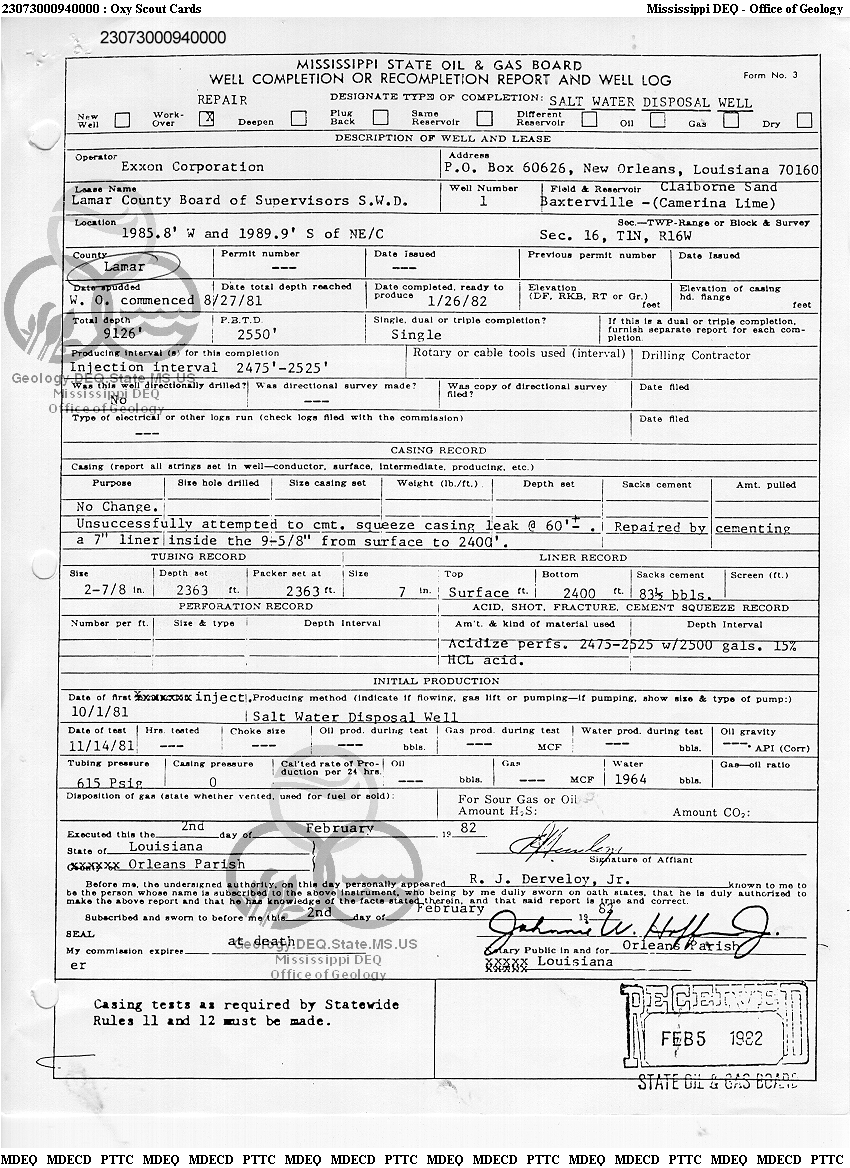 23073000940000 : Oxy Scout Cards
Mississippi DEQ - Office of Geology
23073000940000
MISSISSIPPI STATE OIL & GAS BOARD
WELL COMPLETION OR RECOMPLETION REPORT AND WELL LOG
Form No. 3
REPAIR
DESIGNATE TYPE OF COMPLETION: SALT WATER DISPOSAL WELL
New Well Work-Over X Deepen Plug Back Same Reservoir Different Reservoir Oil Gas Dry
DESCRIPTION OF WELL AND LEASE
Operator Address
Exxon Corporation P.O. Box 60626, New Orleans, Louisiana 70160
Lease Name Well Number Field & Reservoir Claiborne Sand
Lamar County Board of Supervisors S.W.D. 1 Baxterville -(Camerina Lime)
Location Sec.—TWP-Range or Block & Survey
1985.8' W and 1989.9' S of NE/C Sec. 16, T1N, R16W
County Permit number Date Issued Previous permit number Date Issued
Lamar --- ---
Date spudded Date total depth reached Date completed, ready to produce Elevation (DF, RKB, RT or Gr.) feet Elevation of casing hd. flange feet
W. O. commenced 8/27/81 1/26/82
Total depth P.B.T.D. Single, dual or triple completion? If this is a dual or triple completion, furnish separate report for each completion.
9126' 2550' Single
Producing interval (s) for this completion Rotary or cable tools used (interval) Drilling Contractor
Injection interval 2475'-2525'
Geology.DEQ.State.MS.US
Mississippi DEQ
Office of Geology
Was this well directionally drilled? Was directional survey made? Was copy of directional survey filed? Date filed
No ---
Type of electrical or other logs run (check logs filed with the commission) Date filed
---
CASING RECORD
Casing (report all strings set in well—conductor, surface, intermediate, producing, etc.)
Purpose Size hole drilled Size casing set Weight (lb./ft.) Depth set Sacks cement Amt. pulled
No Change.
Unsuccessfully attempted to cmt. squeeze casing leak @ 60'± . Repaired by cementing
a 7" liner inside the 9-5/8" from surface to 2400'.
TUBING RECORD LINER RECORD
Size Depth set Packer set at Size Top Bottom Sacks cement Screen (ft.)
2-7/8 in. 2363 ft. 2363 ft. 7 in. Surface ft. 2400 ft. 83½ bbls.
PERFORATION RECORD ACID, SHOT, FRACTURE, CEMENT SQUEEZE RECORD
Number per ft. Size & type Depth Interval Am't. & kind of material used Depth Interval
Acidize perfs. 2475-2525 w/2500 gals. 15%
HCL acid.
INITIAL PRODUCTION
Date of first inject. Producing method (indicate if flowing, gas lift or pumping—if pumping, show size & type of pump:)
10/1/81 Salt Water Disposal Well
Date of test Hrs. tested Choke size Oil prod. during test Gas prod. during test Water prod. during test Oil gravity
11/14/81 --- --- --- bbls. --- MCF --- bbls. --- ° API (Corr)
Tubing pressure Casing pressure Cal'ted rate of Production per 24 hrs. Oil Gas Water Gas—oil ratio
615 Psig 0 --- bbls. --- MCF 1964 bbls.
Disposition of gas (state whether vented, used for fuel or sold): For Sour Gas or Oil
Amount H₂S: Amount CO₂:
Executed this the 2nd day of February 19 82
State of Louisiana
Signature of Affiant
Orleans Parish
Before me, the undersigned authority, on this day personally appeared R. J. Derveloy, Jr. known to me to
be the person whose name is subscribed to the above instrument, who being by me duly sworn on oath states, that he is duly authorized to
make the above report and that he has knowledge of the facts stated therein, and that said report is true and correct.
Subscribed and sworn to before me this 2nd day of February 19 82
SEAL
My commission expires at death Notary Public in and for Orleans Parish
er Louisiana
Geology.DEQ.State.MS.US
Mississippi DEQ
Office of Geology
Casing tests as required by Statewide
Rules 11 and 12 must be made.
RECEIVED
FEB 5 1982
STATE OIL & GAS BOARD
MDEQ MDECD PTTC MDEQ MDECD PTTC MDEQ MDECD PTTC MDEQ MDECD PTTC MDEQ MDECD PTTC MDEQ MDECD PTTC